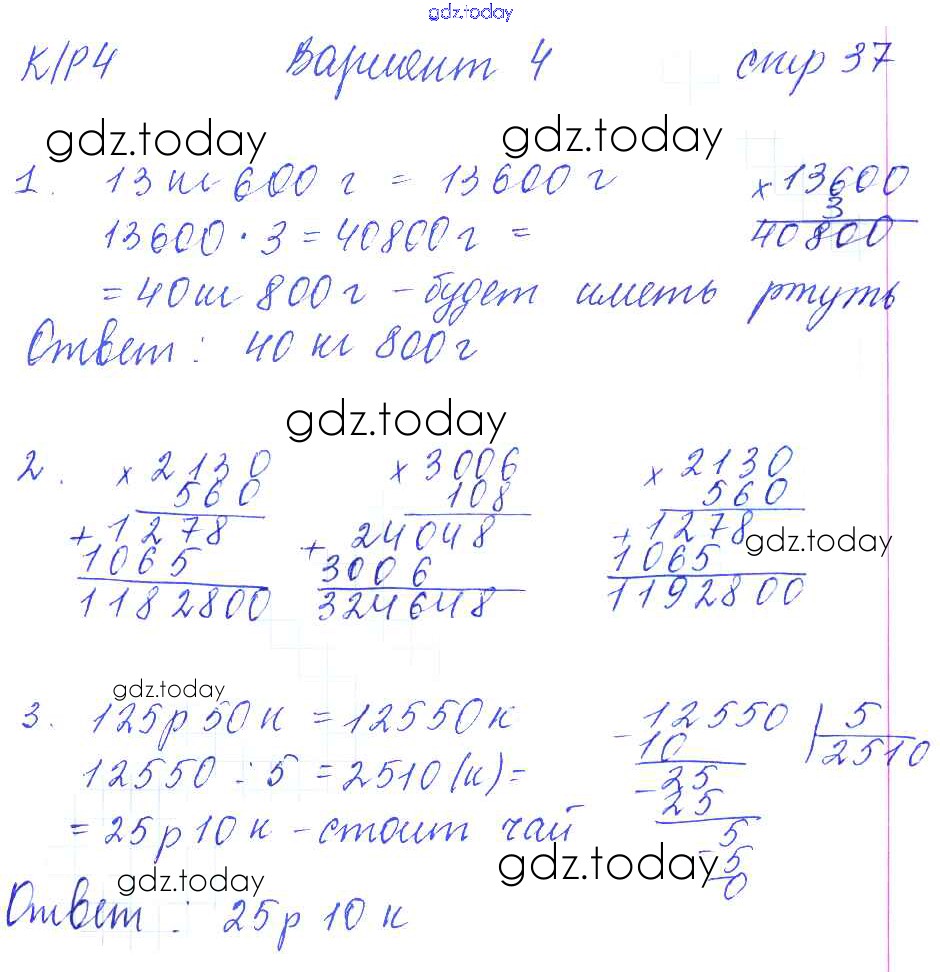 gdz.today
К/Р4 Вариант 4 стр 37
gdz.today gdz.today
1. 13 кг 600 г = 13600 г × 13600
3
13600 · 3 = 40800 г = 40800
= 40 кг 800 г – будет иметь ртуть
Ответ: 40 кг 800 г
gdz.today
2. × 2130 × 3006 × 2130
560 108 560
+ 1278 + 24048 + 1278
gdz.today
1065 3006 1065
1182800 324648 1192800
gdz.today
3. 125 р 50 к = 12550 к - 12550 | 5
10 2510
12550 : 5 = 2510 (к) = - 25
25
= 25 р 10 к – стоит чай 5
gdz.today - 5
gdz.today 0
Ответ: 25 р 10 к